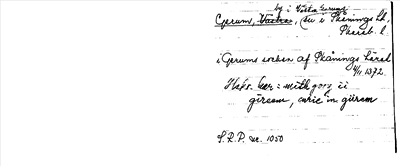 by i Västra Gerums
Gerum, Västra, (sn i Skånings hd,
Skarab. l.
i Gerums soken af Skånings häradh
4/11 1372.
Hskr. har: mith gorz ii
gireem, curie in girem
S.R.P. nr. 1050